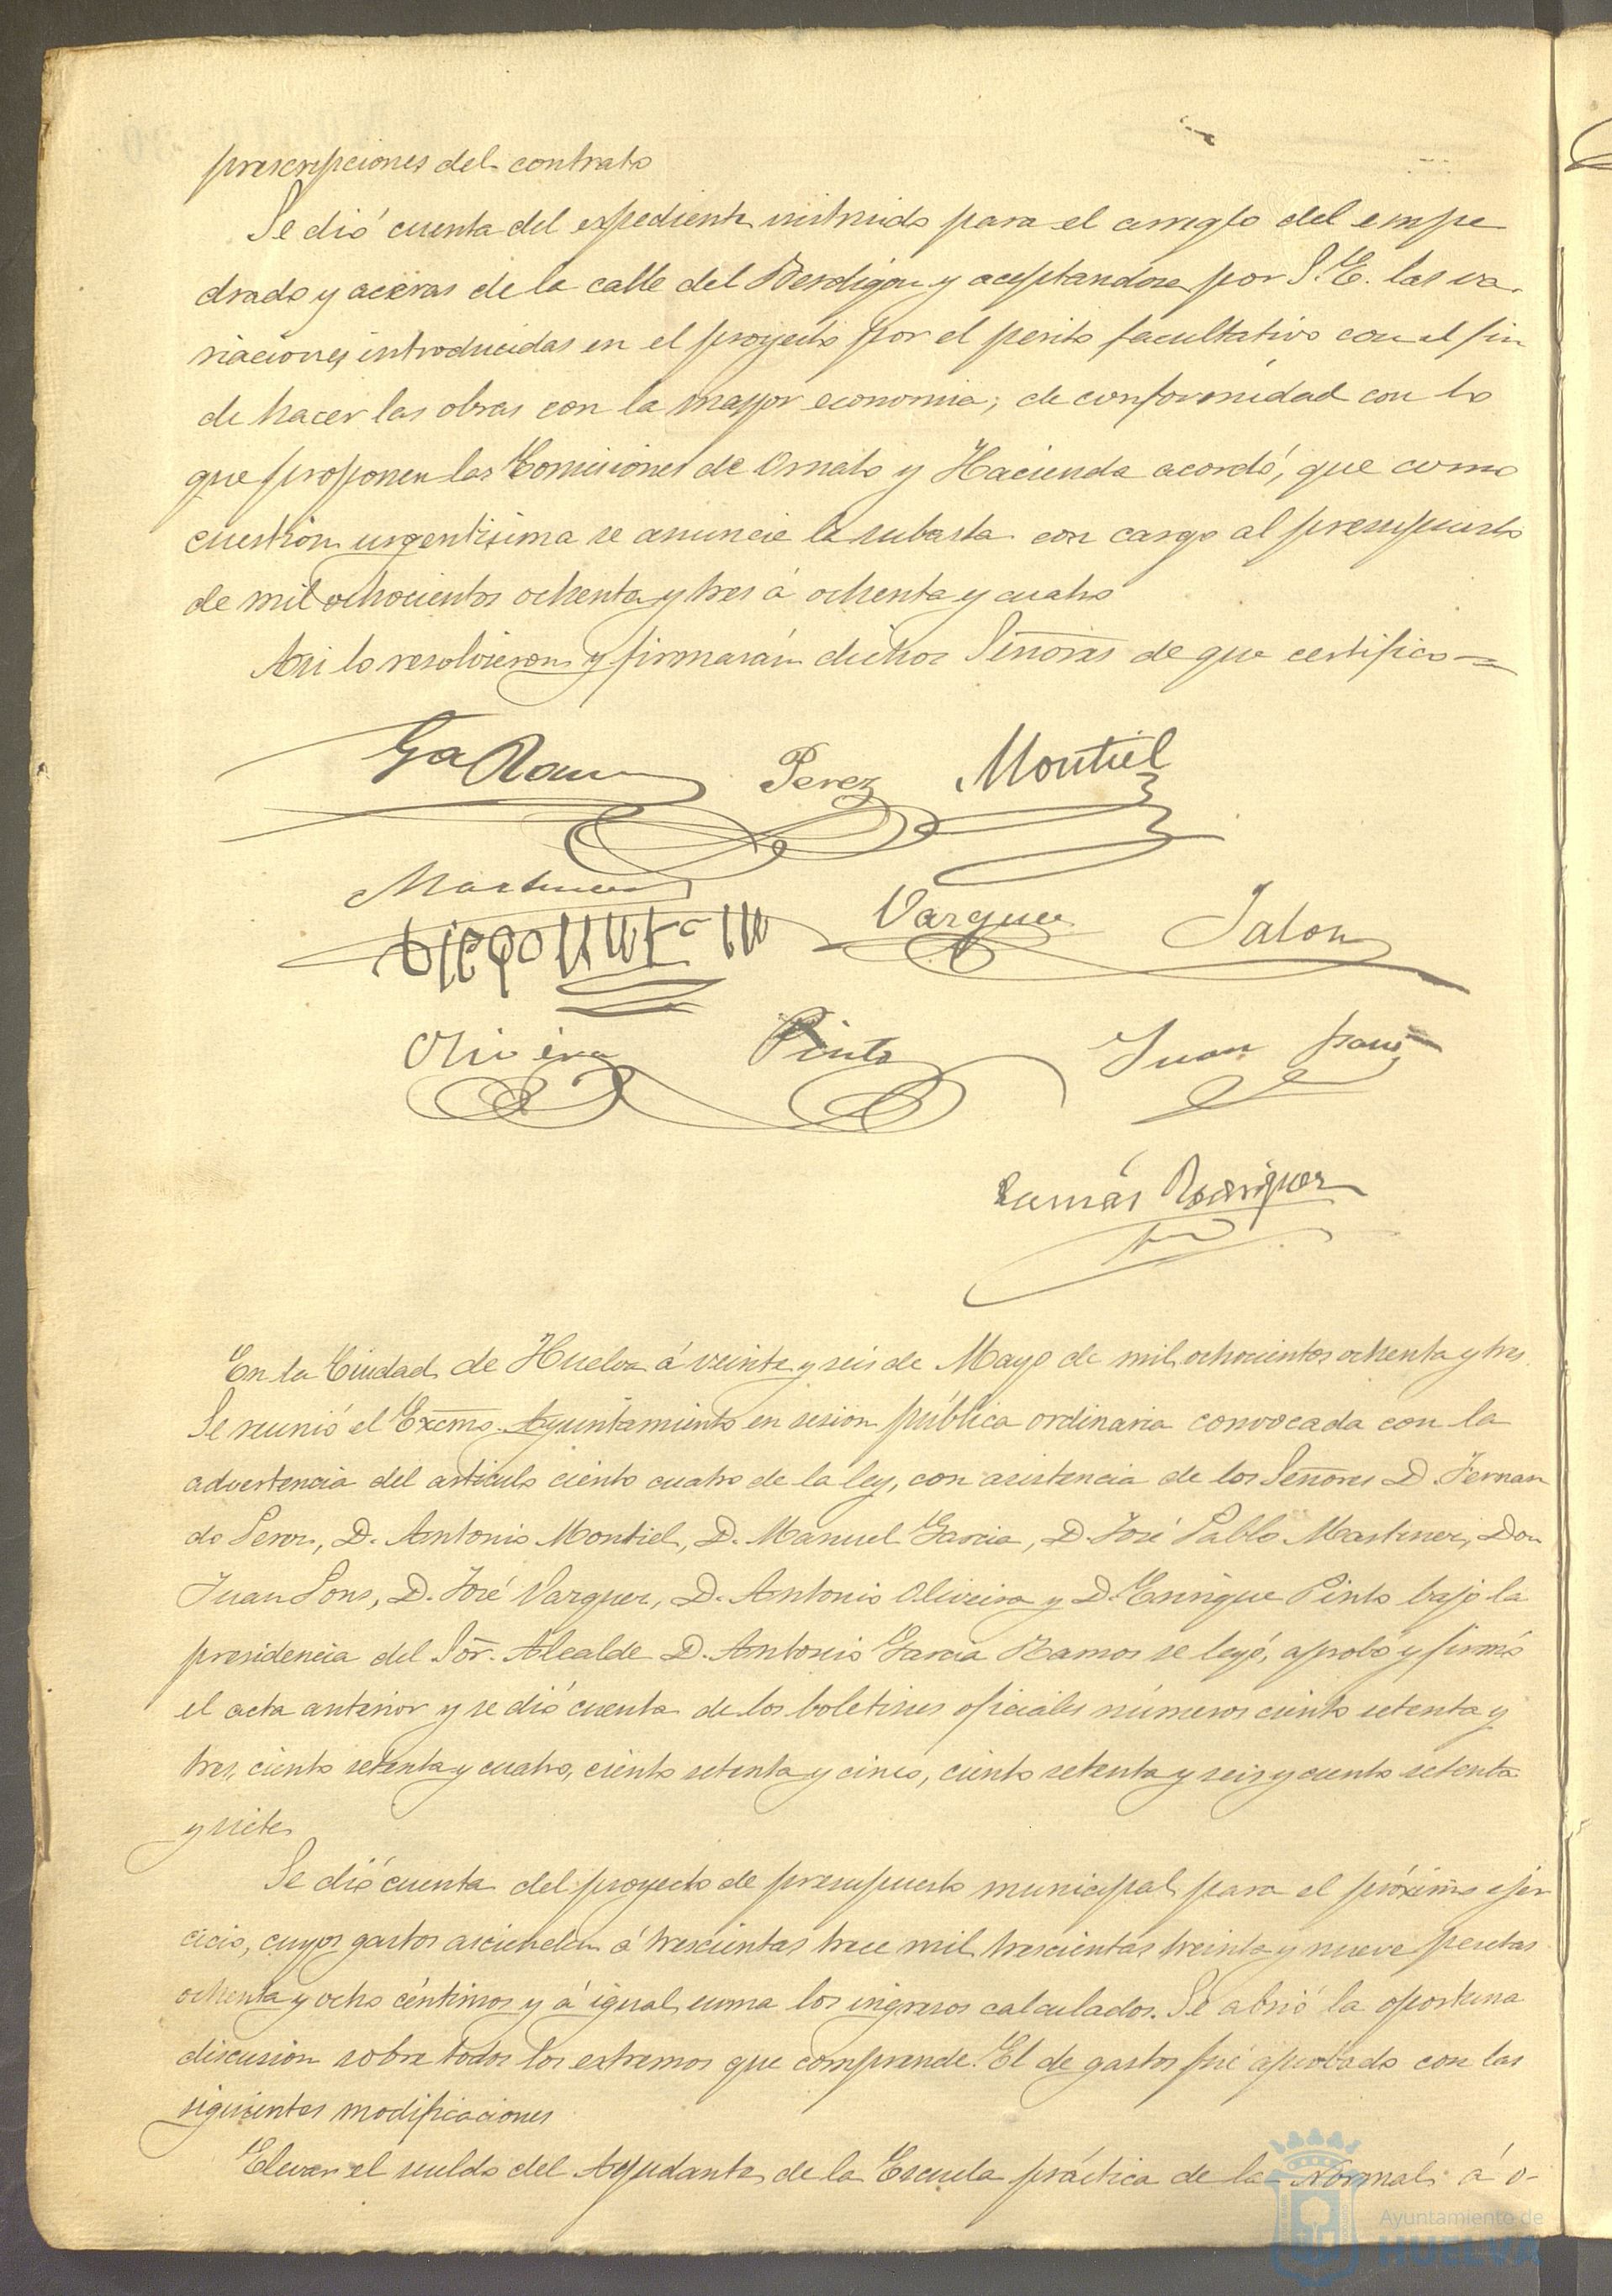 prescripciones del contrato
Se dió cuenta del expediente instruido para el arreglo del empe
drado y aceras de la calle del Berdigon y aceptandose por S. E. las va-
riaciones introducidas en el proyecto por el perito facultativo con el fin
de hacer las obras con la mayor economia; de conformidad con lo
que proponen las Comisiones de Ornato y Hacienda acordó, que como
cuestion urgentisima se anuncie la subasta con cargo al presupuesto
de mil ochocientos ochenta y tres á ochenta y cuatro
Asi lo resolvieron y firmarán dichos Señores de que certifico=
Ga Ramos Perez Montiel
Martinez
Vazquez Jalon
Oliveira Pinto Juan Pons
Tomás Rodriguez
En la Ciudad de Huelva á veinte y seis de Mayo de mil ochocientos ochenta y tres
Se reunió el Excmo. Ayuntamiento en sesion pública ordinaria convocada con la
advertencia del articulo ciento cuatro de la ley, con asistencia de los Señores D. Fernan
do Perez, D. Antonio Montiel, D. Manuel Garcia, D. José Pablo Martinez, Don
Juan Pons, D. José Vazquez, D. Antonio Oliveira y D. Enrique Pinto bajo la
presidencia del Sor. Alcalde D. Antonio Garcia Ramos se leyó, aprobó y firmó
el acta anterior y se dió cuenta de los boletines oficiales números ciento setenta y
tres, ciento setenta y cuatro, ciento setenta y cinco, ciento setenta y seis y ciento setenta
y siete
Se dió cuenta del proyecto de presupuesto municipal para el próximo ejer
cicio, cuyos gastos ascienden á trescientas trece mil trescientas treinta y nueve pesetas
ochenta y ocho céntimos y á igual suma los ingresos calculados. Se abrió la oportuna
discusion sobre todos los extremos que comprende. El de gastos fué aprobado con las
siguientes modificaciones
Elevar el sueldo del Ayudante de la Escuela práctica de la Normal á o-
Ayuntamiento de
HUELVA